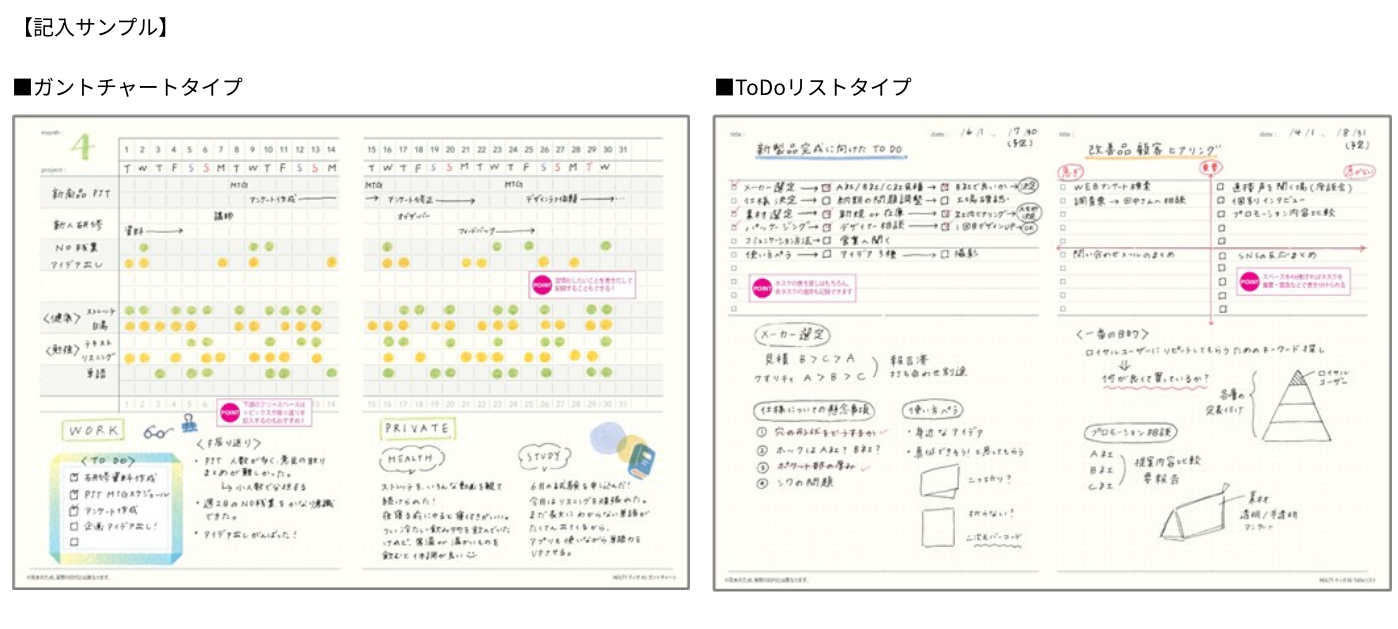 【記入サンプル】
■ガントチャートタイプ
month:
4
1 2 3 4 5 6 7 8 9 10 11 12 13 14
T W T F S S M T W T F S S M
project:
新商品 PJT
MTG
アンケート作成
新人研修
講師
資料
NO残業
アイデア出し
〈健康〉
ストレッチ
白湯
〈勉強〉
テキスト
リスニング
単語
15 16 17 18 19 20 21 22 23 24 25 26 27 28 29 30 31
T W T F S S M T W T F S S M T W
MTG
MTG
アンケート修正
デザイン
オブザーバー
フィードバック
POINT
習慣化したいことを書きだして
記録することもできる！
POINT
下部のフリースペースは
トピックスや振り返りを
記入するのもおすすめ！
WORK
〈TO DO〉
研修資料作成
PJT MTGスケジュール
アンケート作成
企画アイデア出し！
〈振り返り〉
・PJT 人数が多く、意見の取り
まとめが難しかった。
小人数で分担する
・週2日のNO残業をかなり意識
できた。
・アイデア出しがんばった！
PRIVATE
HEALTH
ストレッチを、いろんな動画を観て
続けられた！
夜寝る前にやると寝付きがいい。
つい冷たい飲み物を飲んでいた
けれど、常温か温かいものを
飲むと体調が良い
STUDY
6月の試験を申し込んだ！
今月はリスニングを頑張れた。
まだ長文にわからない単語が
たくさん出てくるから、
アプリも使いながら単語力を
UPさせる。
※見本のため、実際の日付とは異なります。
NOLTY ティオ A5 ガントチャート
■ToDoリストタイプ
title:
新製品完成に向けた TO DO
date:
/6/1 〜 /7/30
(予定)
メーカー選定 → A社/B社/C社見積 → B社で良いか → 決定
仕様決定 → 納期の問題調整 → 工場確認
素材選定 → 新規 or 在庫 → 社内ヒアリング
パッケージング → デザイナー相談 → 1回目デザインUP → OK
コミュニケーション方法 → 営業へ聞く
使い方ペラ → アイデア3種 → 撮影
POINT
タスクの書き出しはもちろん、
各タスクの進捗も記録できます
メーカー選定
見積 B > C > A
クオリティ A > B > C
報告書
打ち合わせ別途
仕様についての懸念事項
① 穴の形状をどうするか
② ホックはA社？B社？
③ ポケット部の厚み
④ シワの問題
使い方ペラ
・身近なアイデア
・真似できそう！と思ってもらう
ニッチかり？
折らない？
二次元バーコード
※見本のため、実際の日付とは異なります。
title:
改善品 顧客ヒアリング
date:
/4/1 〜 /8/31
(予定)
急ぎ
重要
急がない
WEBアンケート検索
調査票 → 田中さんへ相談
直接声を聞く場(座談会)
個別インタビュー
プロモーション内容比較
問い合わせメールのまとめ
SNSの反応まとめ
POINT
スペースを4分割すればタスクを
重要・緊急などで書き分けられる
〈一番の目的〉
ロイヤルユーザーにリピートしてもらうためのキーワード探し
何が良くて買っているか？
各層の
定義付け
ロイヤル
ユーザー
プロモーション相談
A社
B社
C社
提案内容比較
要報告
素材
透明/半透明
アンケート
NOLTY ティオ A5 ToDoリスト